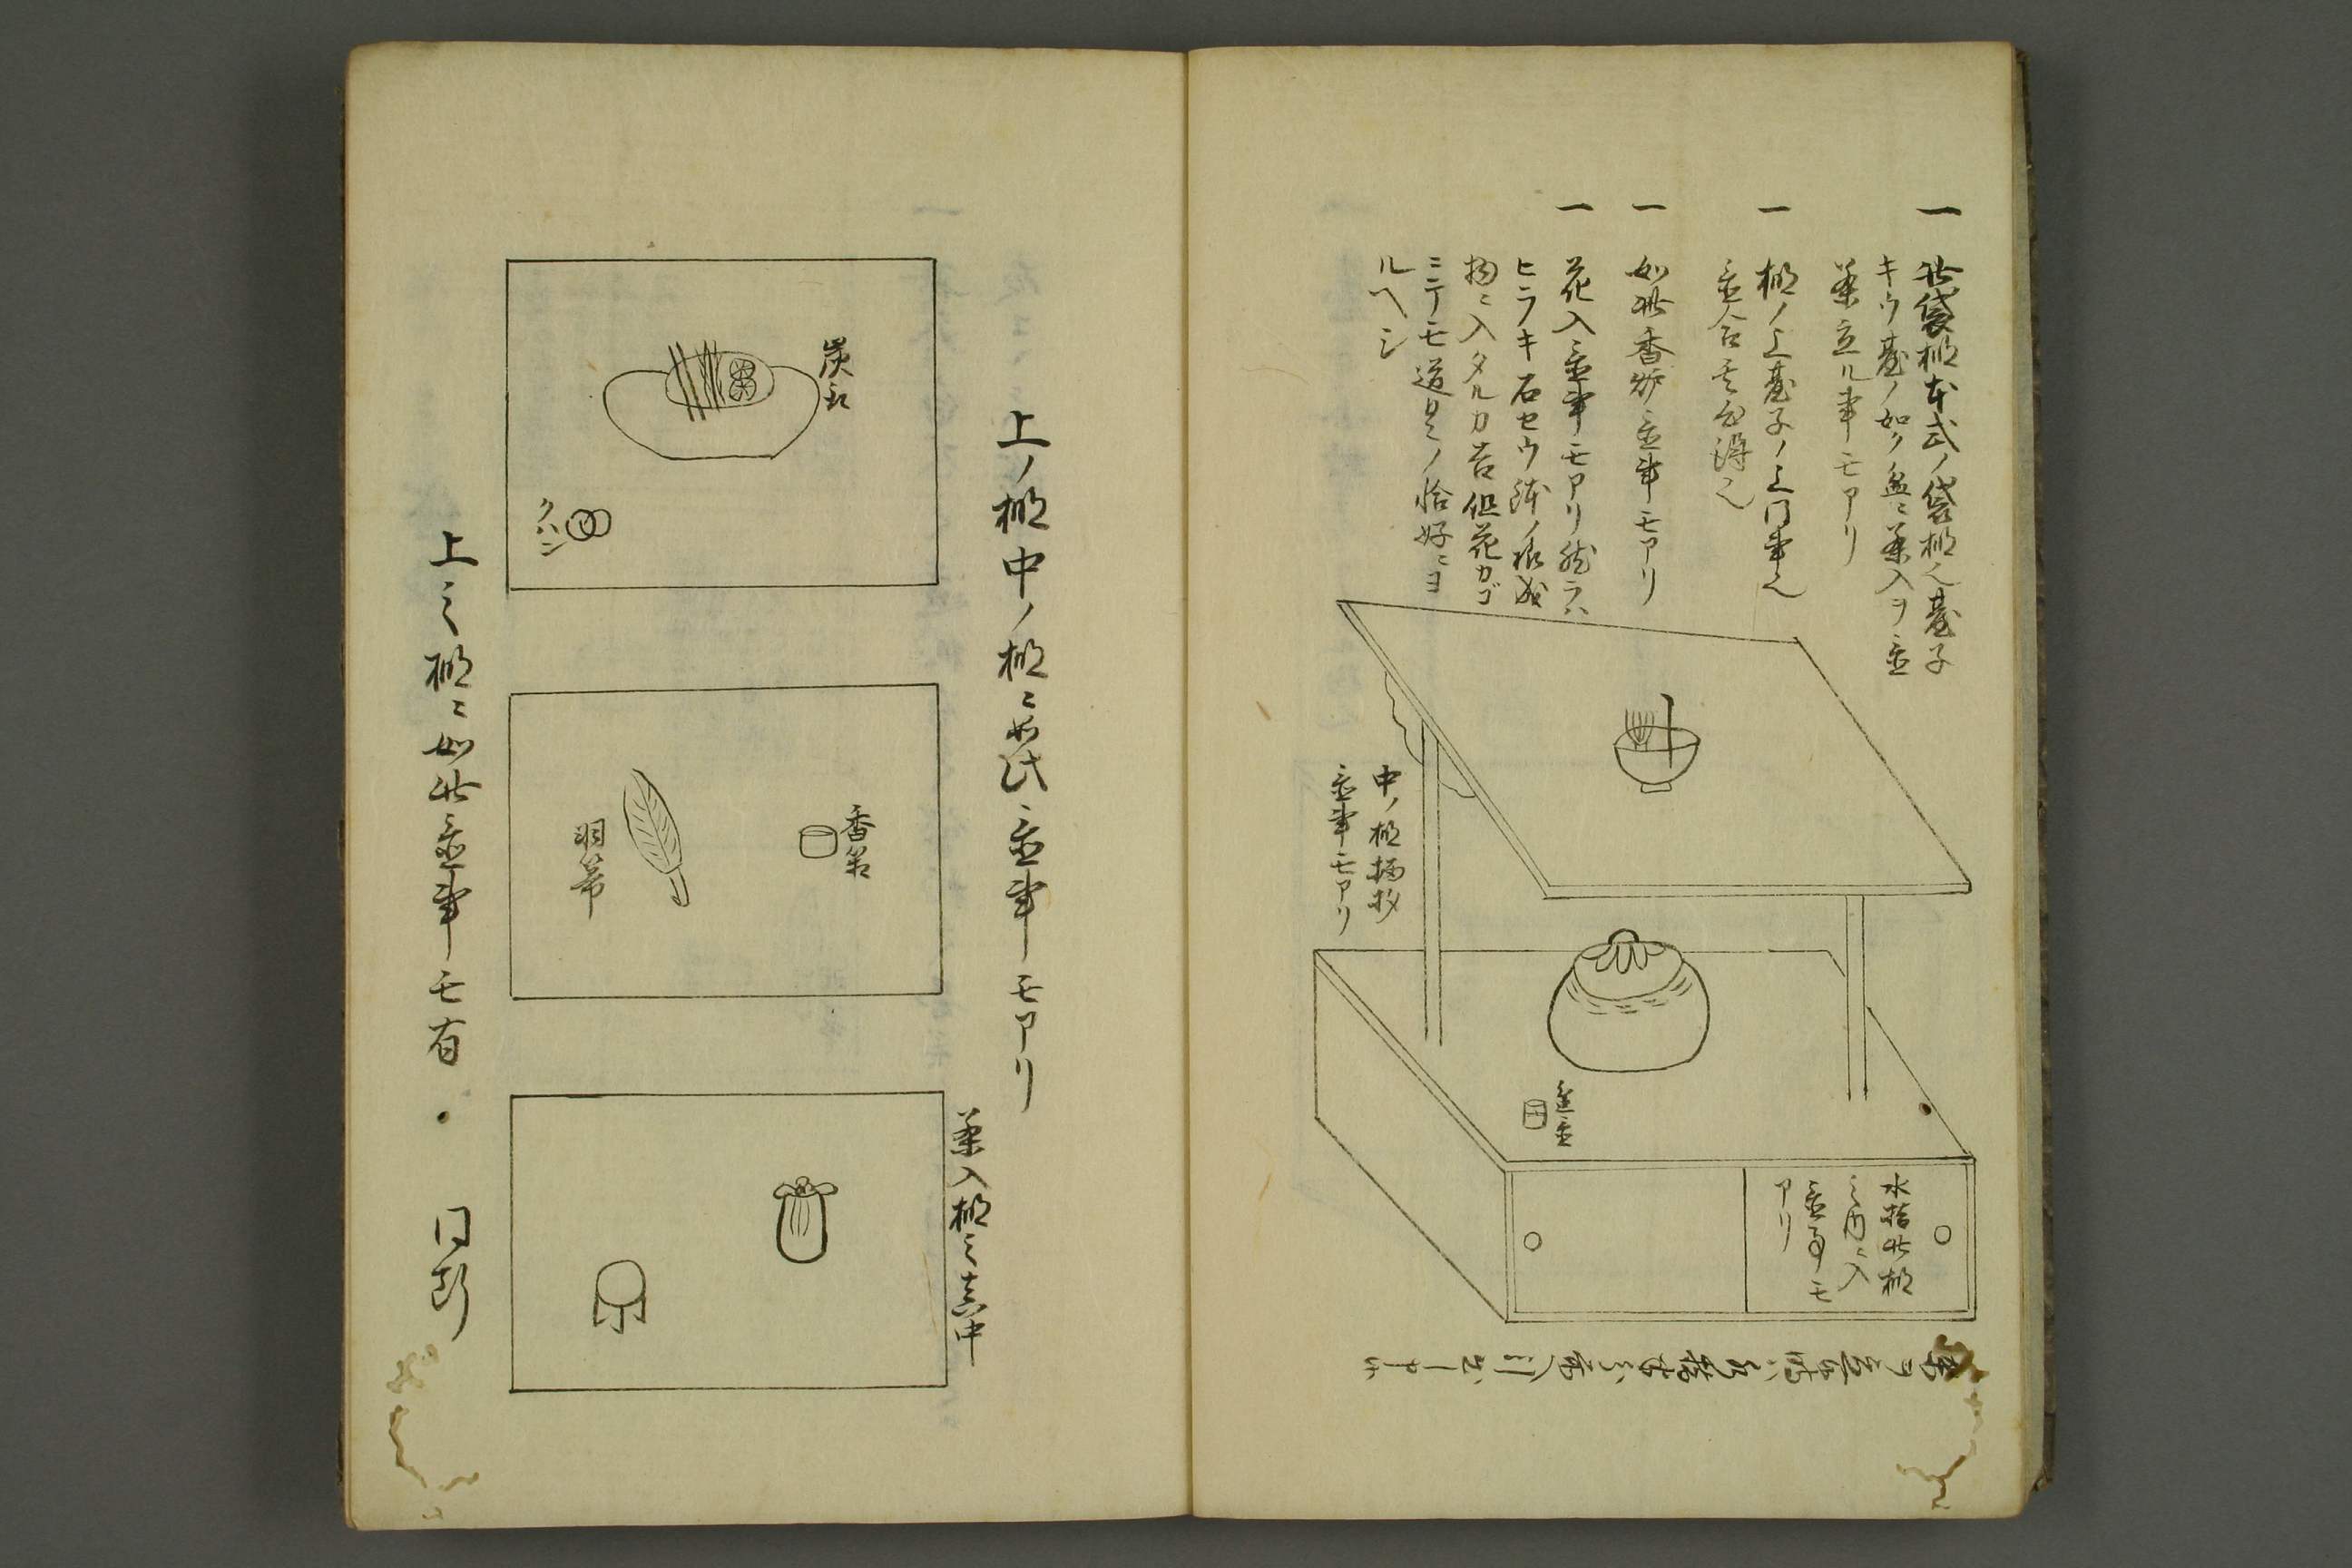 一 此袋棚本式ノ袋棚也臺子
キウ臺ノ如ク盆ニ茶入ヲ置
茶立ル事モアリ
一 棚ノ上臺子ノ上同事也
置合其心得也
一 如此香炉置事モアリ
一 花入置事モアリ然ラハ
ヒラキ石セウ鉢ノ根或
物ニ入タルカ吉但花カゴ
ニテモ道具ノ恰好ニヨ
ルヘシ
中ノ棚柄杓
置事モアリ
蓋置
水指此棚
之内ニ入
置事モ
アリ
上ノ棚中ノ棚ニ如此置事モアリ
炭斗
クハン
香箱
羽箒
茶入棚之真中
上之棚ニ如此置事モ有・同断